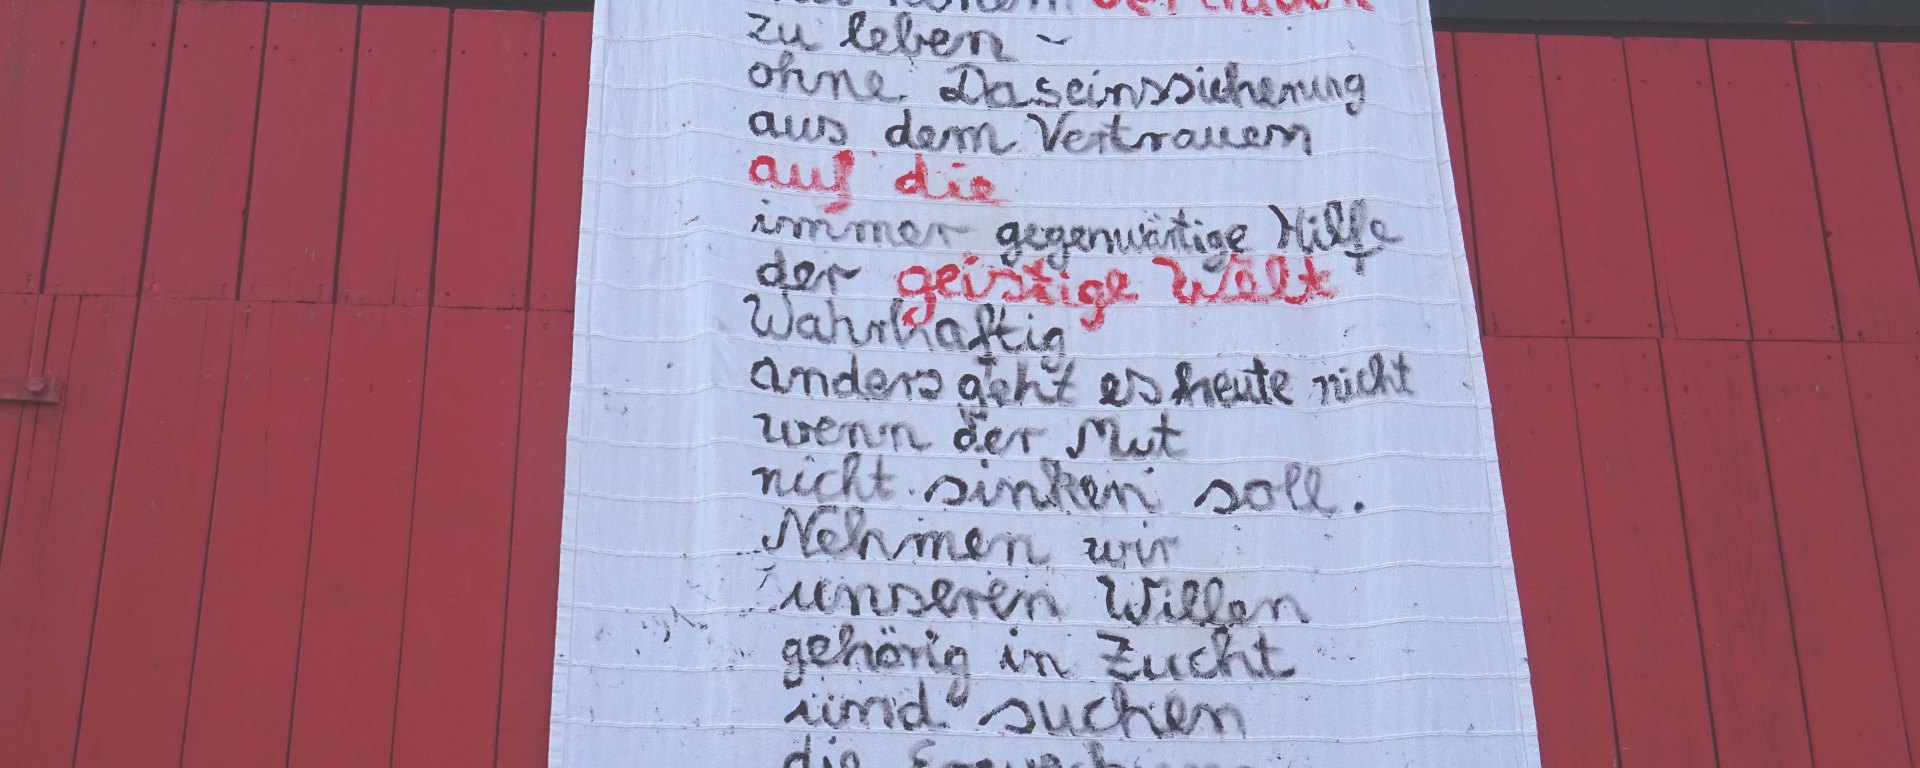 Vertrauen
zu leben -
ohne Daseinssicherung
aus dem Vertrauen
auf die
immer gegenwärtige Hilfe
der geistige Welt
Wahrhaftig
anders geht es heute nicht
wenn der Mut
nicht sinken soll.
Nehmen wir
unseren Willen
gehörig in Zucht
und suchen
die